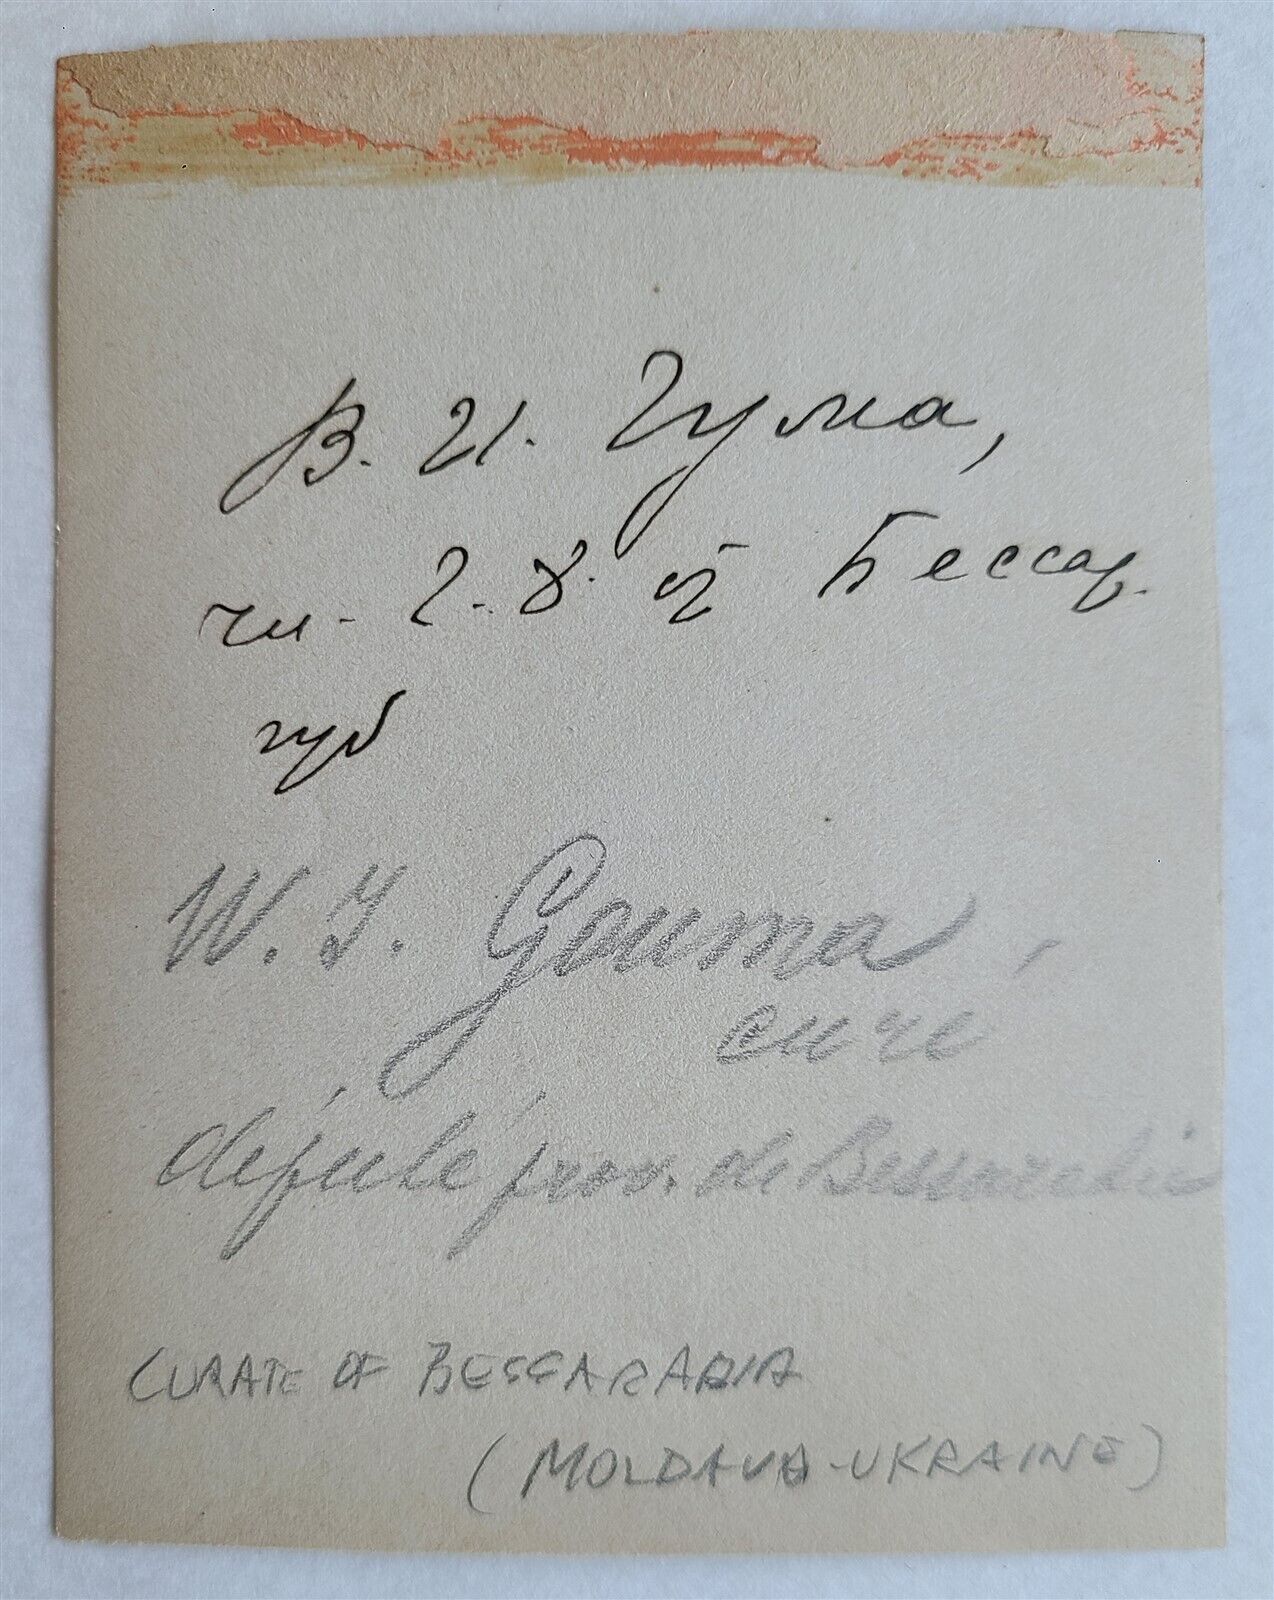 В. И. Гума,
чл. Г. Д. Бессар.
губ
W. J. Gouma,
cure
député prov. de Bessarabie
CURATE OF BESSARABIA
(MOLDAVA-UKRAINE)